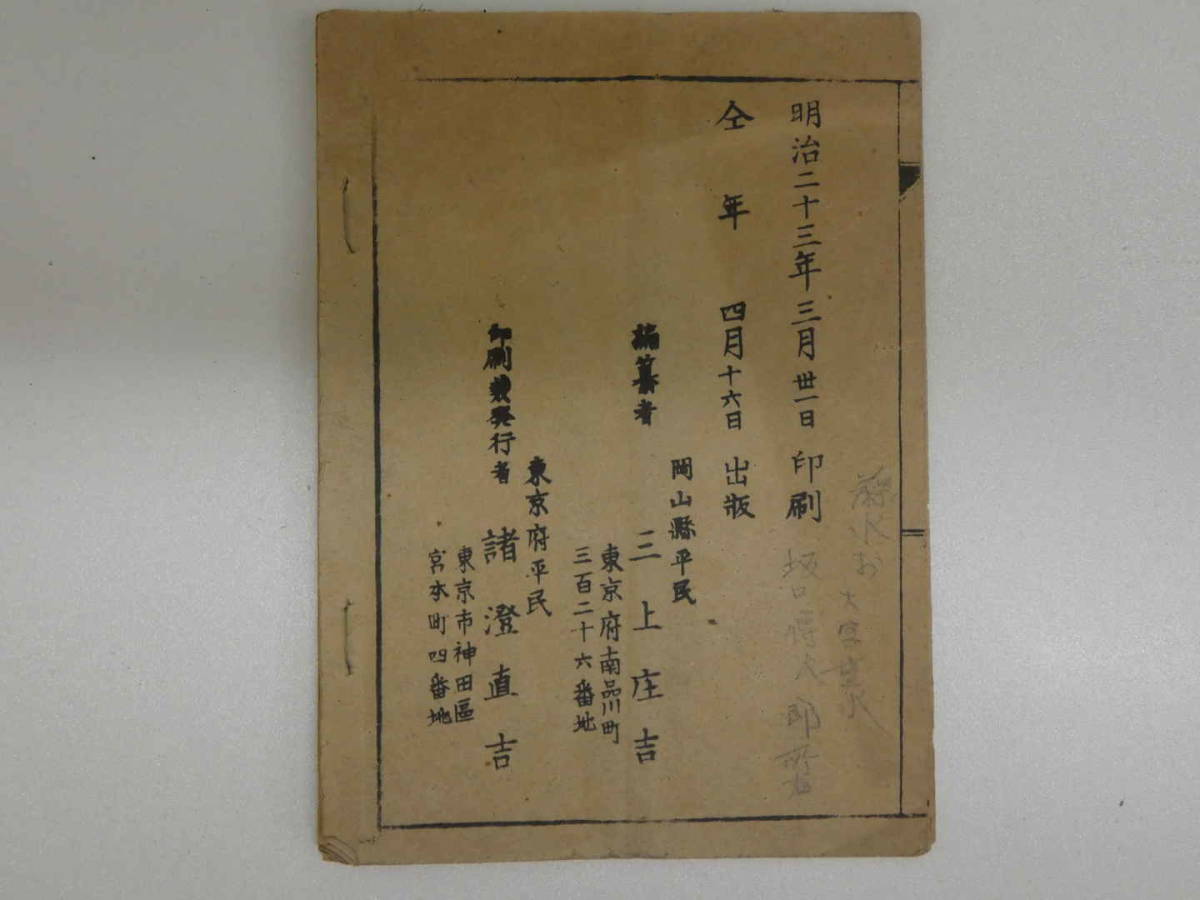 明治二十三年三月卅一日印刷
仝年四月十六日出版
岡山縣平民
編纂者 三上庄吉
東京府南品川町
三百二十六番地
東京府平民
印刷兼発行者 諸澄直吉
東京市神田區
宮本町四番地